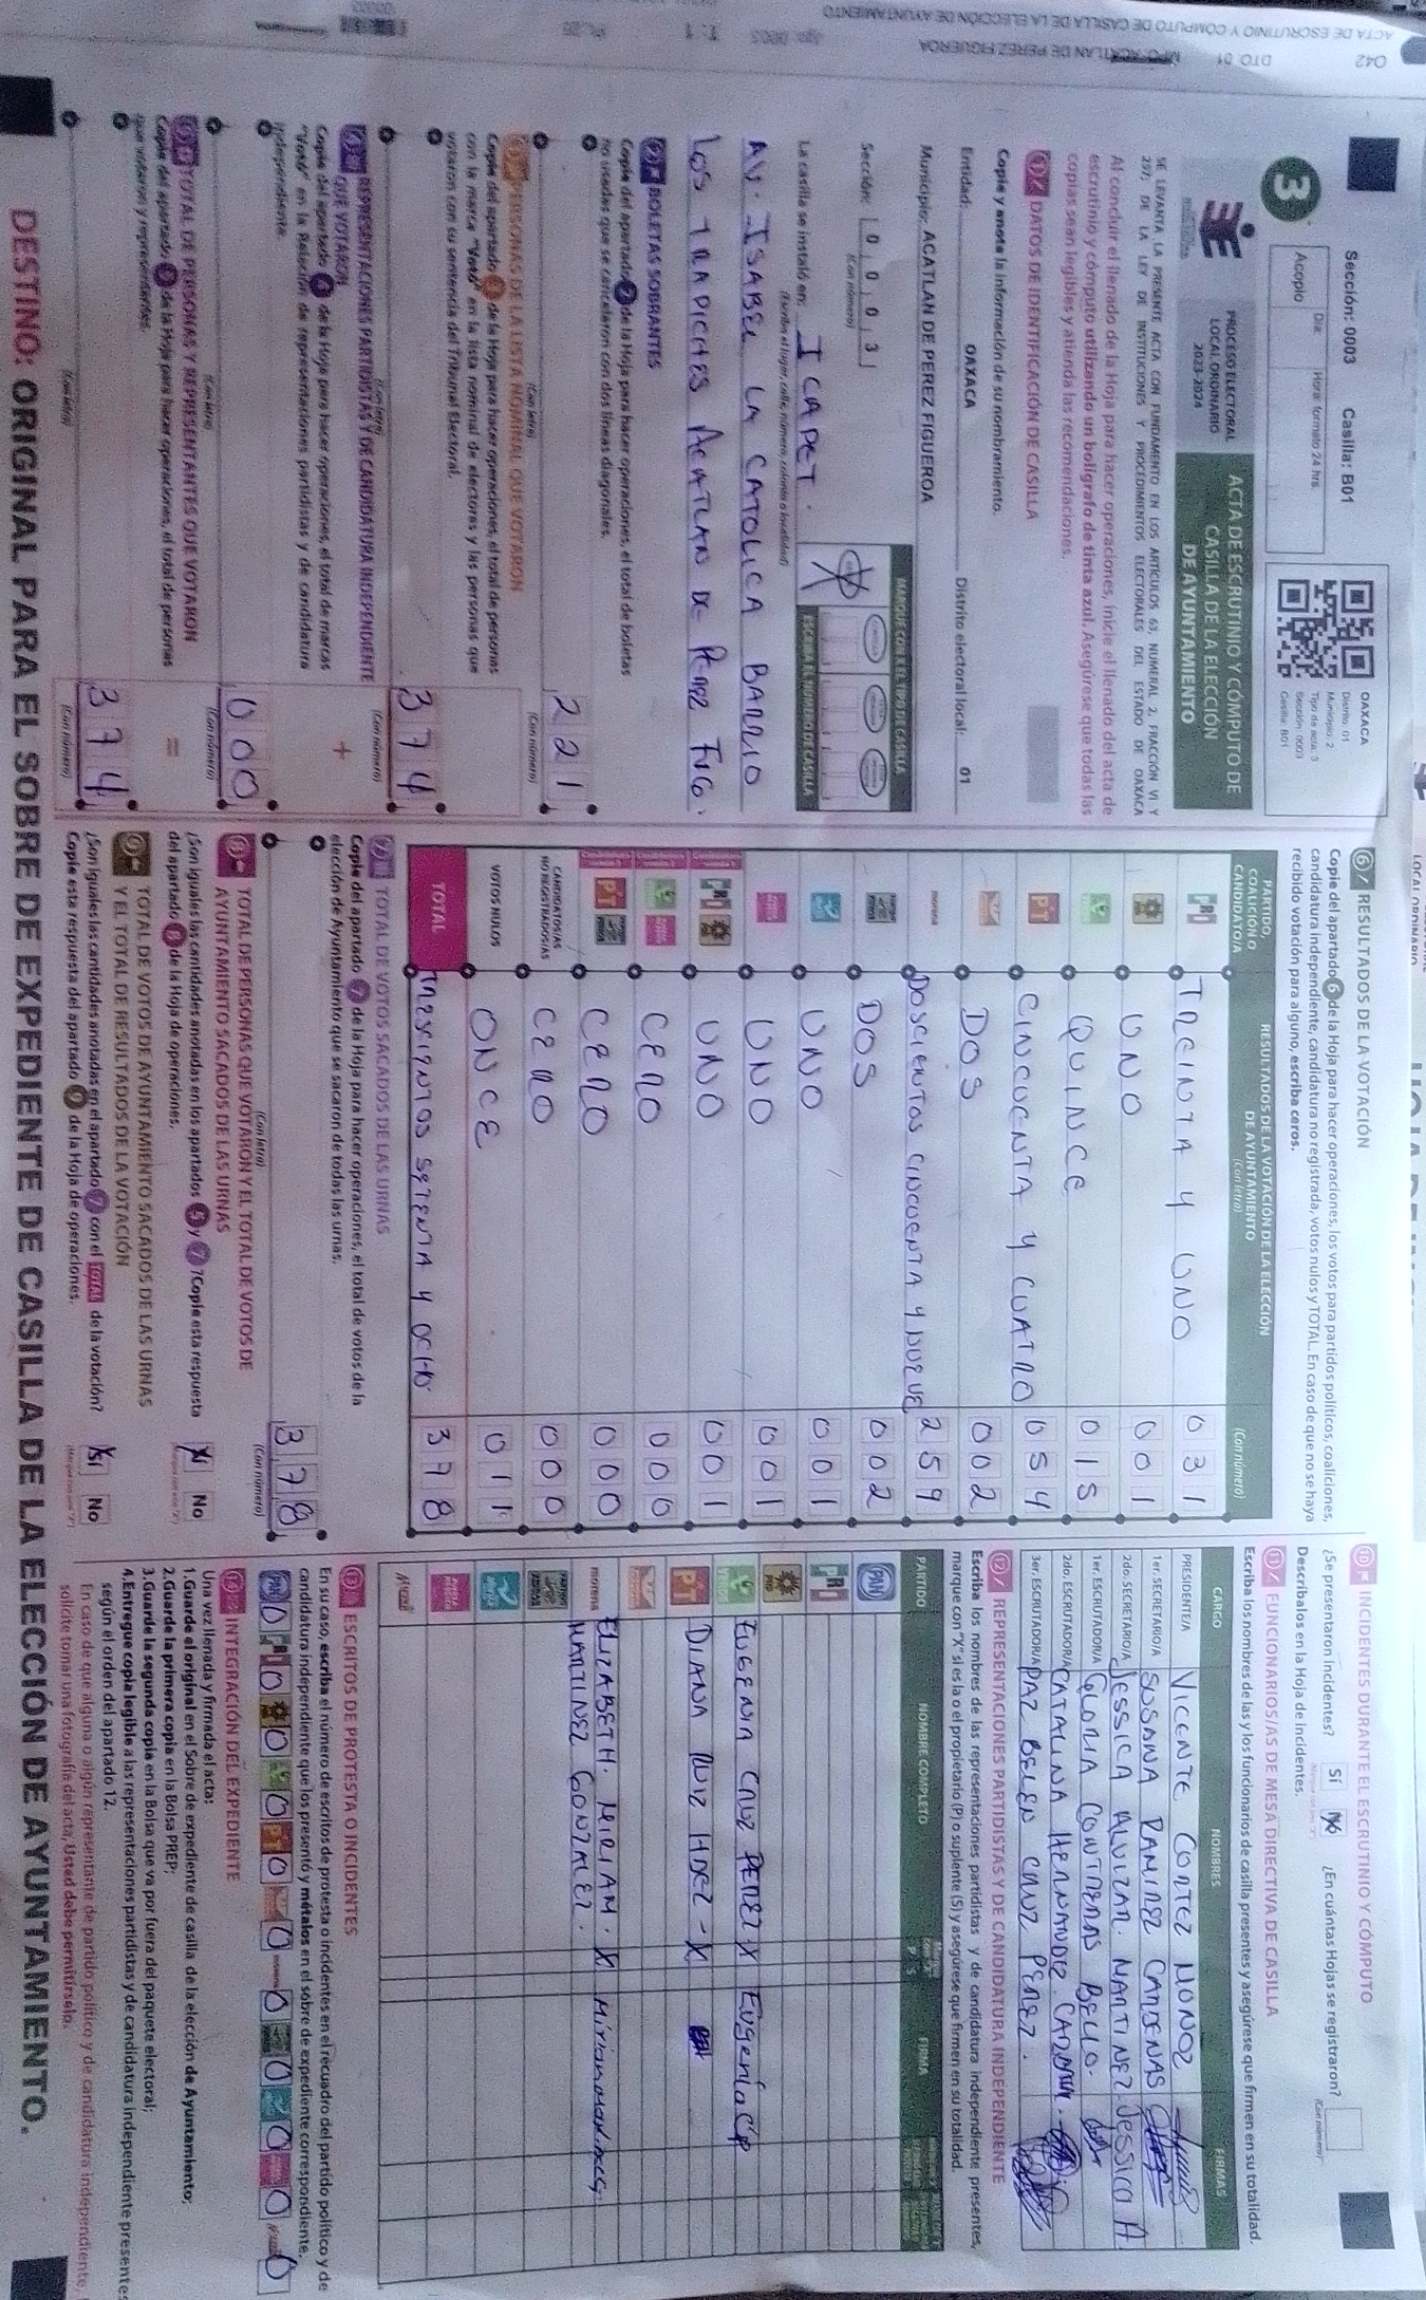 Sección: 0003 Casilla: B01
3
Acopio
Día: Hora: formato 24 hrs.
OAXACA
Distrito: 01
Municipio: 2
Tipo de acta: 3
Sección: 0003
Casilla: B01
PROCESO ELECTORAL
LOCAL ORDINARIO
2023-2024
ACTA DE ESCRUTINIO Y CÓMPUTO DE
CASILLA DE LA ELECCIÓN
DE AYUNTAMIENTO
SE LEVANTA LA PRESENTE ACTA CON FUNDAMENTO EN LOS ARTÍCULOS 63, NUMERAL 2, FRACCIÓN VI Y
237; DE LA LEY DE INSTITUCIONES Y PROCEDIMIENTOS ELECTORALES DEL ESTADO DE OAXACA
Al concluir el llenado de la Hoja para hacer operaciones, inicie el llenado del acta de
escrutinio y cómputo utilizando un bolígrafo de tinta azul. Asegúrese que todas las
copias sean legibles y atienda las recomendaciones.
1 DATOS DE IDENTIFICACIÓN DE CASILLA
Copie y anote la información de su nombramiento.
Entidad: OAXACA Distrito electoral local: 01
Municipio: ACATLAN DE PEREZ FIGUEROA
MARQUE CON X EL TIPO DE CASILLA
Sección: 0 0 0 3
(Con número)
ESCRIBA EL NÚMERO DE CASILLA
La casilla se instaló en: ICAPET.
(Escriba el lugar, calle, número, colonia o localidad)
AV. ISABEL LA CATOLICA BARRIO
LOS TRAPICHES ACATLAN DE PEREZ FIG.
2 BOLETAS SOBRANTES
Copie del apartado 2 de la Hoja para hacer operaciones, el total de boletas
no usadas que se cancelaron con dos líneas diagonales.
221
(Con letra) (Con número)
3 PERSONAS DE LA LISTA NOMINAL QUE VOTARON
Copie del apartado 3 de la Hoja para hacer operaciones, el total de personas
con la marca "Votó" en la lista nominal de electores y las personas que
votaron con su sentencia del Tribunal Electoral.
374
(Con letra) (Con número)
4 REPRESENTACIONES PARTIDISTAS Y DE CANDIDATURA INDEPENDIENTE
QUE VOTARON
Copie del apartado 4 de la Hoja para hacer operaciones, el total de marcas
"Votó" en la Relación de representaciones partidistas y de candidatura
independiente.
+
000
(Con letra) (Con número)
5 TOTAL DE PERSONAS Y REPRESENTANTES QUE VOTARON
Copie del apartado 5 de la Hoja para hacer operaciones, el total de personas
que votaron y representantes.
=
374
(Con letra) (Con número)
6 RESULTADOS DE LA VOTACIÓN
Copie del apartado 6 de la Hoja para hacer operaciones, los votos para partidos políticos, coaliciones,
candidatura independiente, candidatura no registrada, votos nulos y TOTAL. En caso de que no se haya
recibido votación para alguno, escriba ceros.
PARTIDO,
COALICIÓN O
CANDIDATO/A
RESULTADOS DE LA VOTACIÓN DE LA ELECCIÓN
DE AYUNTAMIENTO
(Con letra) (Con número)
PRI TREINTA Y UNO 031
UNO 001
QUINCE 015
PT CINCUENTA Y CUATRO 054
DOS 002
morena DOSCIENTOS CINCUENTA Y NUEVE 259
DOS 002
UNO 001
UNO 001
PRI UNO 001
CERO 000
PT CERO 000
CANDIDATOS/AS
NO REGISTRADOS/AS CERO 000
VOTOS NULOS ONCE 011
TOTAL TRESCIENTOS SETENTA Y OCHO 378
7 TOTAL DE VOTOS SACADOS DE LAS URNAS
Copie del apartado 7 de la Hoja para hacer operaciones, el total de votos de la
elección de Ayuntamiento que se sacaron de todas las urnas.
378
(Con letra) (Con número)
8 TOTAL DE PERSONAS QUE VOTARON Y EL TOTAL DE VOTOS DE
AYUNTAMIENTO SACADOS DE LAS URNAS
¿Son iguales las cantidades anotadas en los apartados 5 y 7? Copie esta respuesta
del apartado 8 de la Hoja de operaciones.
Sí No
9 TOTAL DE VOTOS DE AYUNTAMIENTO SACADOS DE LAS URNAS
Y EL TOTAL DE RESULTADOS DE LA VOTACIÓN
¿Son iguales las cantidades anotadas en el apartado 7 con el TOTAL de la votación?
Copie esta respuesta del apartado 9 de la Hoja de operaciones.
Sí No
10 INCIDENTES DURANTE EL ESCRUTINIO Y CÓMPUTO
¿Se presentaron incidentes? Sí No ¿En cuántas Hojas se registraron?
Descríbalos en la Hoja de Incidentes.
11 FUNCIONARIOS/AS DE MESA DIRECTIVA DE CASILLA
Escriba los nombres de las y los funcionarios de casilla presentes y asegúrese que firmen en su totalidad.
CARGO NOMBRES FIRMAS
PRESIDENTE/A VICENTE CORTEZ MUNOZ
1er. SECRETARIO/A SUSANA RAMIREZ CARDENAS
2do. SECRETARIO/A JESSICA ALVIZAR MARTINEZ Jessica A
1er. ESCRUTADOR/A GLORIA CONTRERAS BELLO.
2do. ESCRUTADOR/A CATALINA HERNANDEZ
3er. ESCRUTADOR/A PAZ BELEN CRUZ PEREZ.
12 REPRESENTACIONES PARTIDISTAS Y DE CANDIDATURA INDEPENDIENTE
Escriba los nombres de las representaciones partidistas y de candidatura independiente presentes,
marque con "X" si es la o el propietario (P) o suplente (S) y asegúrese que firmen en su totalidad.
PARTIDO NOMBRE COMPLETO P S FIRMA
PAN
PRI
PRD
VERDE EUGENIA CRUZ PEREZ X Eugenia CP
PT DIANA RUIZ HDEZ - X
morena ELIZABETH. MIRIAM. X
MARTINEZ GONZALEZ.
13 ESCRITOS DE PROTESTA O INCIDENTES
En su caso, escriba el número de escritos de protesta o incidentes en el recuadro del partido político y de
candidatura independiente que los presentó y métalos en el sobre de expediente correspondiente.
PAN 0 PRI 0 0 0 PT 0 0 0 0 0 0 0
14 INTEGRACIÓN DEL EXPEDIENTE
Una vez llenada y firmada el acta:
1. Guarde el original en el Sobre de expediente de casilla de la elección de Ayuntamiento;
2. Guarde la primera copia en la Bolsa PREP;
3. Guarde la segunda copia en la Bolsa que va por fuera del paquete electoral;
4. Entregue copia legible a las representaciones partidistas y de candidatura independiente presentes
según el orden del apartado 12.
En caso de que alguna o algún representante de partido político y de candidatura independiente,
solicite tomar una fotografía del acta, Usted debe permitírselo.
DESTINO: ORIGINAL PARA EL SOBRE DE EXPEDIENTE DE CASILLA DE LA ELECCIÓN DE AYUNTAMIENTO.
042 DTO. 01 MPO. ACATLAN DE PEREZ FIGUEROA
ACTA DE ESCRUTINIO Y COMPUTO DE CASILLA DE LA ELECCIÓN DE AYUNTAMIENTO